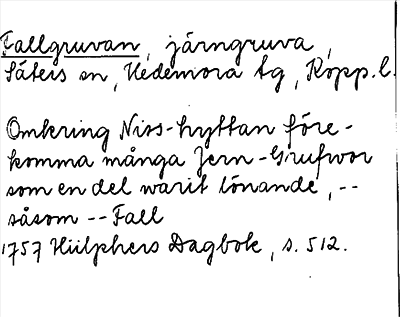 Fallgruvan, järngruva,
Säters sn, Hedemora tg, Kopp.l.
Omkring Niss-hyttan före-
komma många Jern-Grufwor
som en del warit lönande, --
såsom -- Fall
1757 Hülphers Dagbok, s. 512.